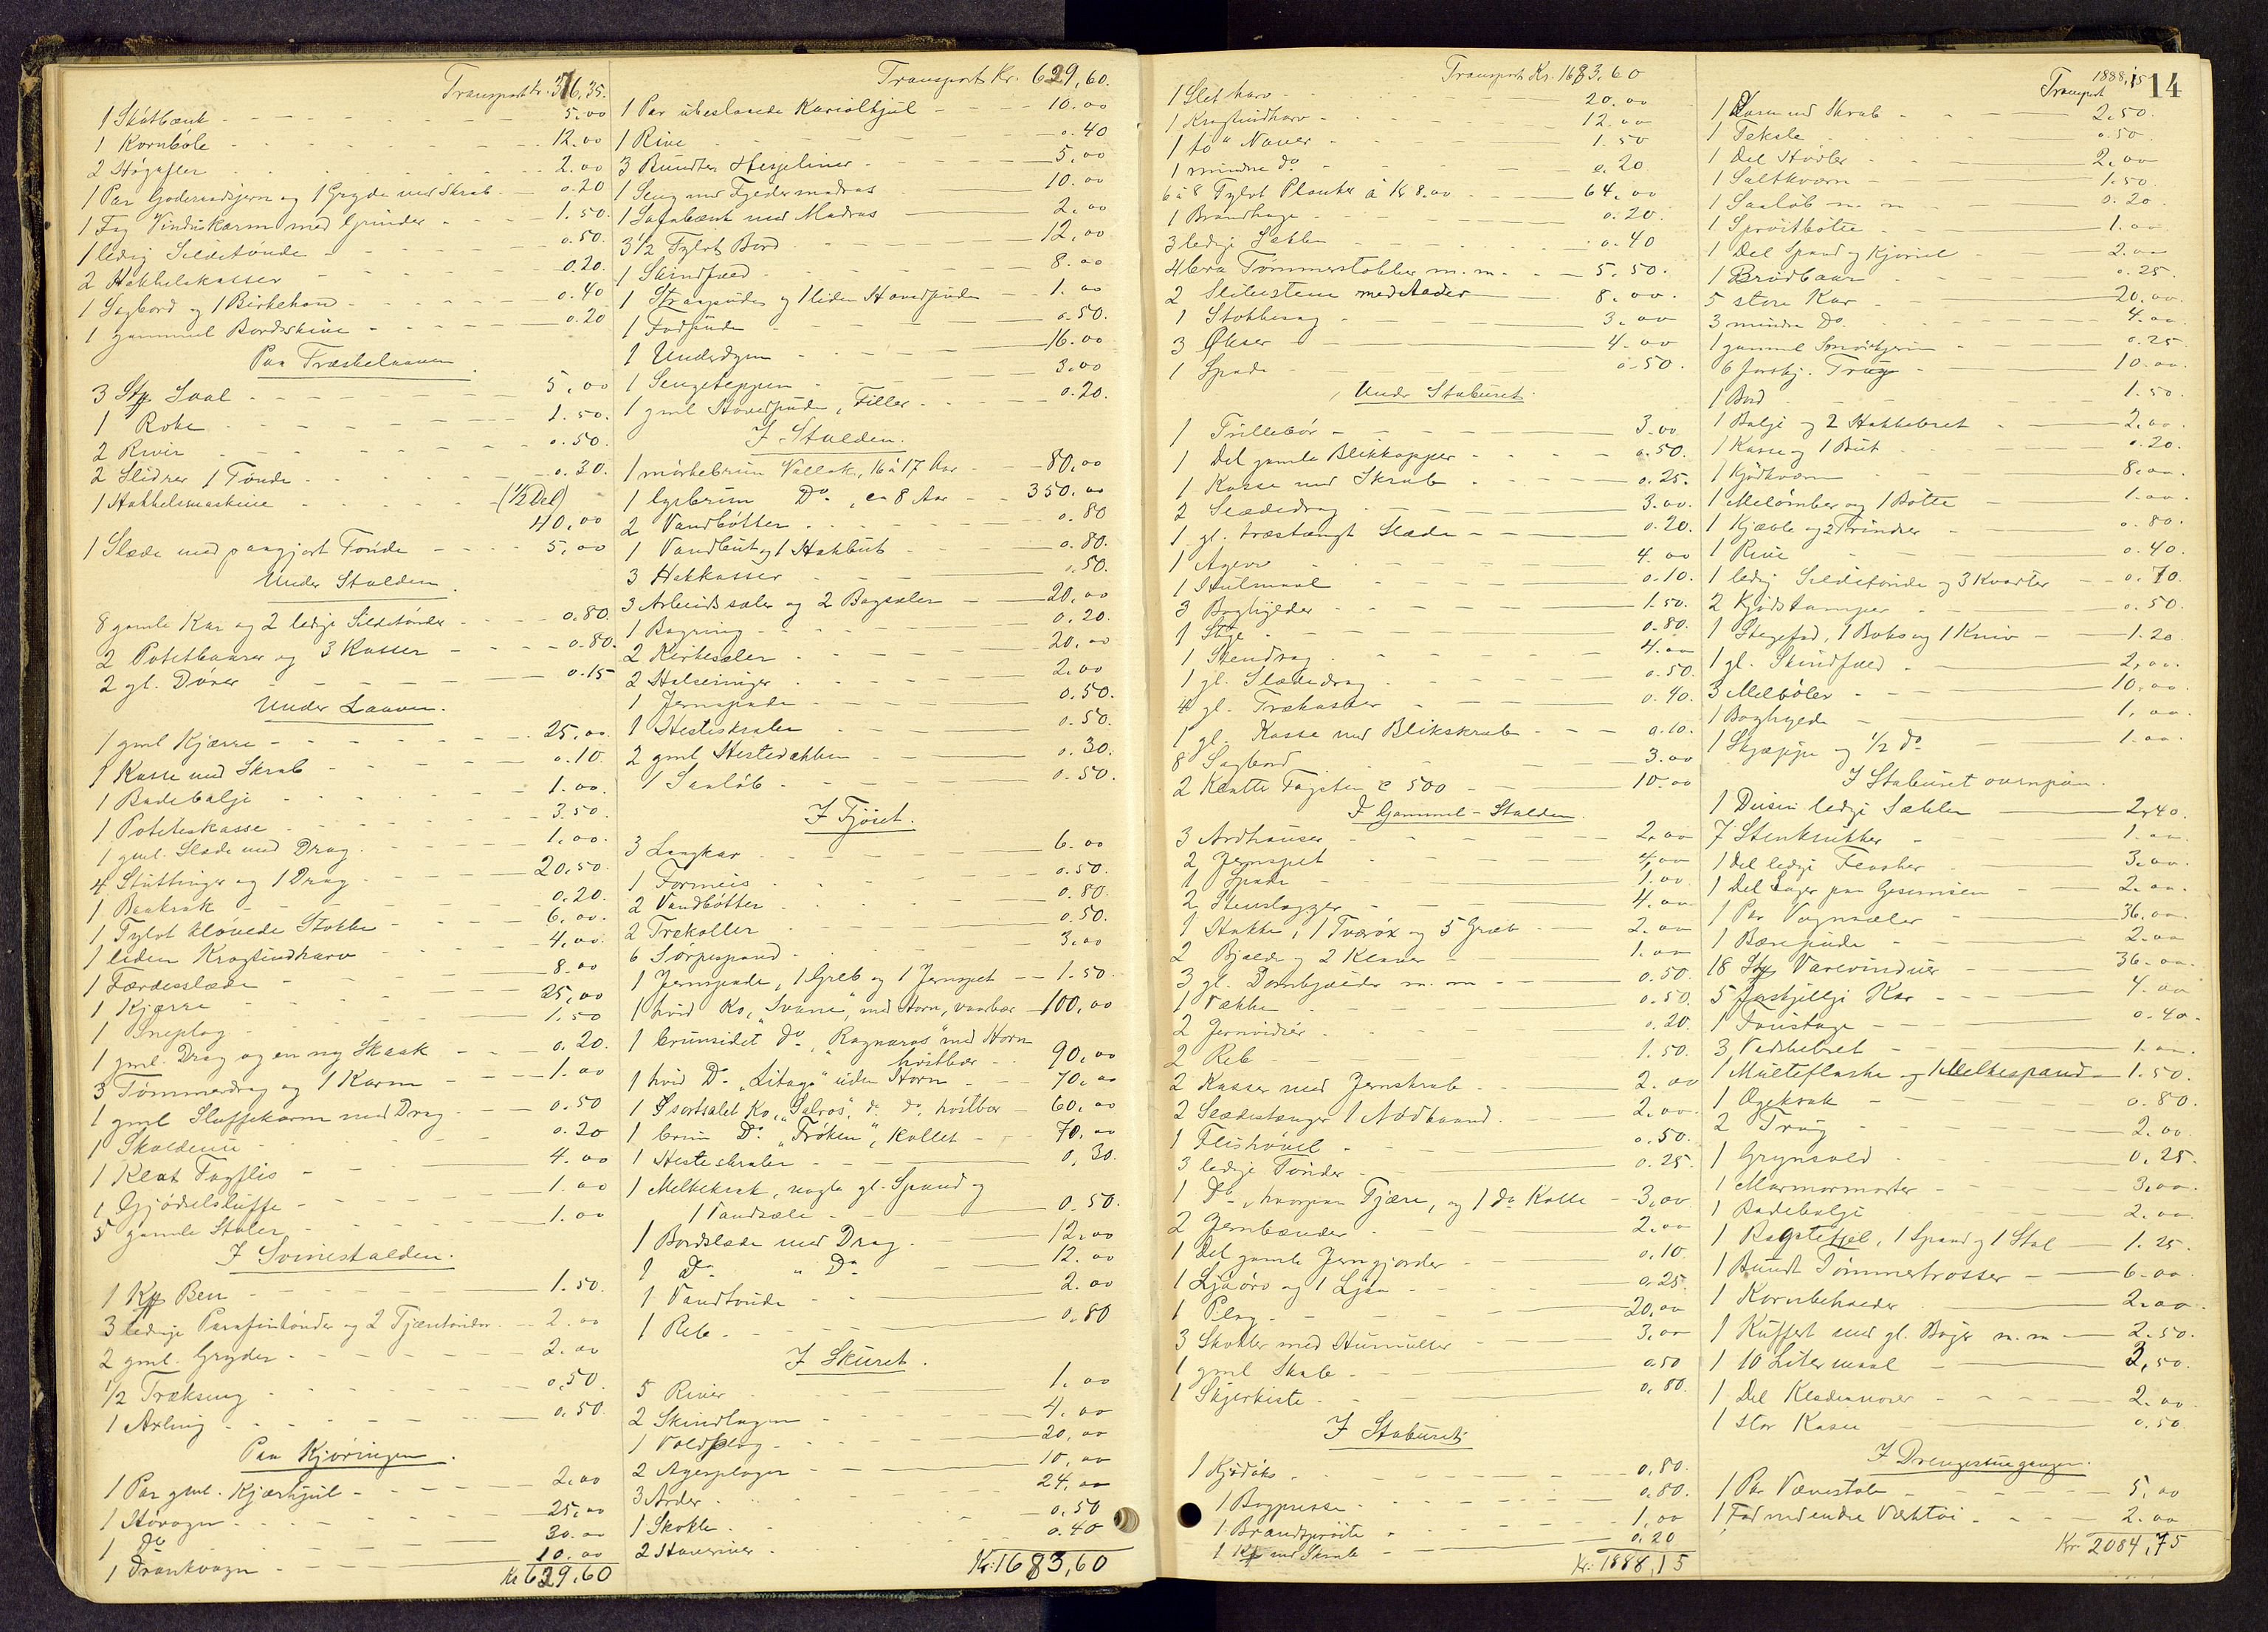 Transport Kr. 376,35.
1 Skåtbænk 5.00
1 Kornböle 12.00
2 Högafler 2.00
1 Par Goderaadsjern og 1 Gryde med Skrab 0.20
1 Fag Vindiskarm med Grinder 1.50.
1 ledig Sildetönde 0.50.
2 Hakkelskasser 0.20.
1 Sagbord og 1 Birkehon 0.40
1 gammel Bordskive 0.20
Paa Træskelaaven.
3 Stk Saal 5,00
1 Roke 1.50.
2 River 0.50.
2 Slidrer 1 Tönde 0.30.
1 Hakkelsmaskine (1/2 Del)
40,00
1 Slæde med paagjort Tönde 5,00
Under Stalden.
8 gamle Kar og 2 ledige Sildetönder 0.80.
2 Potetbaarer og 3 Kasser 0.80.
2 gl. Dörer 0.15
Under Laaven.
1 gml Kjærre 25,00.
1 Kasse med Skrab 0.10.
1 Badebalje 1.00.
1 Poteteskasse 3.50.
1 gml. Slæde med Drag. 1,00.
4 Stuttinger og 1 Drag 20,50.
1 Baakrak 0.20.
1 Tylvt klövede Stokke 6,00.
1 liden Krogtindharv 4,00.
1 Færdesslæde 8.00
1 Kjærre 25,00
1 Sneplog 1.50
1 gml. Drag og en ny Skaak 0.20.
3 Tömmerdrag og 1 Karm 1.00
1 gml Sluffekarm med Drag 0.50
1 Skoldeuu 0.20
1 Klat Tagflis 4.00
1 Gjödselsluffe 1.00
5 gamle Stoler 1.00
I Svinestalden.
1 Kp Ben 1.50.
3 ledige Parafintönder og 2 Tjæretönder 2.00
2 gml. Gryder 2.00
1/2 Trækseng 0,50.
1 Axling 0,50.
Paa Kjöringen.
1 Par gml. Kjærhjul 2,00
1 Hövogn 25,00
1 Do 30.00
1 Drankvogn 10.00
Kr 629.60
Transport Kr. 629,60.
1 Par ubeslaaede Kariolhjul 10.00
1 Rive 0.40
3 Bundter Hesjeliner 5,00
1 Seng med Fjedermadras 10.00
1 Sofabænk med Madras 2,00
3 1/2 Tylvt Bord 12,00
1 Skindfæld 8.00
1 Straapude og 1 liden Hovedpude 1.00
1 Fodpude 0.50.
1 Underdyne 16.00
1 Sengeteppe 3.00
1 gml Hovedpude, Filler 0.20.
I Stalden.
1 mörkebrun Vallak, 16 à 17 Aar 80,00
1 lysbrun Do, ca 8 Aar 350.00
2 Vandbötter 0.80
1 Vandbut og 1 Hakbut 0.80.
3 Hakkasser 0.50.
3 Arbeidssæler og 2 Bagsæler 20,00
1 Bagring 0.20.
2 Kirkesæler 20,00
2 Halseringer 2.00
1 Jernspade 0.50.
1 Hesteskrabe 0.50.
2 gml Hestedækken 0.30.
1 Saalöb 0.50.
I Fjöset.
3 Langkar 6.00
1 Formeis 0.50.
2 Vandbötter 0.80.
2 Trekoller 0.50.
6 Sörpespand 3.00
1 Jernspade, 1 Greb og 1 Jernspet 1.50
1 hvid Ko, "Svane", med Horn, vaarbær 100,00
1 brunsidet Do "Ragnaros" med Horn
höstbær 90,00
1 hvid Do "Litago" uden Horn 70,00
1 Sortsalet Ko, "Salros", do do, höstbær 60,00
1 brun Do "Fröken", Kollet 70,00
1 Hesteskrabe 0,30.
1 Melkekrak, nogle gl. Spand og
1 Vandsale 0.50.
1 Bordslæde med Drag 12.00
1 Do " Do 12.00
1 Vandtönde 2.00
1 Reb 0.80
I Skuret.
5 River 1.00
2 Skindlugen 4.00
1 Voldplog 20,00
2 Agerploger 10,00
3 Arder 24,00
1 Skokle 0.50
2 Staveriver 0.40
Kr. 1683,60
Transport Kr. 1683,60
1 Slet harv 20.00
1 Krogtindharv 12.00
1 to " Naver 1.50
1 mindre do 0.20
6 à 8 Tylvt Planker à K 8.00 64,00
1 Brandhage 0.20.
3 ledige Sække 0.40
4 bra Tömmerstokker m.m. 5.50.
2 Slibestene med Aader 8.00.
1 Stokkesag 3.00
3 Økser 4.00
1 Spade 0.50.
Under Staburet.
1 Trillebör 3.00
1 Del gamle Blikkopper 0.50.
1 Kasse med Skrab 0.25.
2 Slædedrag 3.00.
1 gl. træstængt Slæde 0.20.
1 Agerv 4.00
1 Hulmaal 0.10.
3 Boghylder 1.50.
1 Stige 0.80.
1 Stendrag 4.00
1 gl. Slædedrag 0.50
4 gl. Trækasser 0.40.
1 gl. Kasse med Blikskrab 0.10.
8 Sagbord 3.00
2 Knutte Tagsten c 500 10.00
I Gammel-Stalden.
3 Ardhauser 2.00
2 Jernspet 4,00
1 Spade 1.00
2 Stenslægger 4.00
1 Hakke, 1 Tværöx og 5 Greb 2.00
2 Bjælder og 2 Klaver 1.00
3 gl. Dombjælder m.m 0.50.
1 Vække 0.50.
2 Jernvidier 0.20.
2 Reb 1.50.
2 Kasser med Jernskrab 2.00
2 Slædestænger 1 Nödbaand 2.00.
1 Flishövel 0.50.
3 ledige Tönder 0.25.
1 Do, hvorpaa Tjære, og 1 do Kolle 3,00
2 Jernbænder 2.00
1 Del gamle Jerngjorder 0.10
1 Ljaaörv og 1 Ljaa 0.25
1 Plog 20.00
3 Skokler med Humuller 3.00
1 gml Skab 0.50
1 Skjerkiste 0.80.
I Staburet
1 Kjödöks 0,80.
1 Bogpresse 0.80.
1 Brandspröite 1,00
1 Kp med Skrab 0.20
Kr. 1888,15
1888,15 14
Transport
1 Kasse med Skrab 2.50.
1 Teksle 0.50.
1 Del Hövler 2.00
1 Saltkværn 1.50.
1 Saalöb m. m 0.20.
1 Spröitbötte 1.00
1 Del Spand og Kjörrel 2.00
1 Brödbaar 0.25.
5 store Kar 20.00.
3 mindre Do. 4.00.
1 gammel 0.25
6 forskj. Trug 10.00.
1 Bord 1.50.
1 Balje og 2 Hakkebret 2.00.
1 Kasse og 1 But 0.20.
1 Kjödkværn 8.00.
1 Melömber og 1 Bötte 1.00.
1 Kjævle og 2 Trinder 0.80.
1 Rive 0.40.
1 ledig Sildetönde og 3 Kvarter 0.70.
2 Kjödstamper 0.50.
1 Stegefad, 1 Boks og 1 Kniv 1.20
1 gl. Skindfæld 2,00.
3 Melböler 10,00.
1 Boghylde 1,00.
1 Skjæppe og 1/2 do 1.00.
I Staburet ovenpaa.
1 Dusin ledige Sække 2,40.
7 Stenkrukker 1.00
1 Del ledige Flasker 3.00.
1 Del Lager paa Gesimsen 2.00.
1 Par Vognsæler 36,00.
1 Bærepude 2.00
18 Stk Varevinduer 36.00.
5 forskjellige Kar 4.00
1 Foustage 0.40.
3 Vadskebret 1.00.
1 Multeflaske og 1 Melkespand 1.50.
1 Øgekrak 0.80.
2 Trug 2.00.
1 Grynsold 0.25.
1 Marmormorter 3.00.
1 Badebalje 2.00.
1 Bagstefjel, 1 Spand og 1 Stol 1.25.
1 Bundt Tömmertrosser 6.00.
1 Kornbeholder 2.00.
1 Kuffert med gl. Böger m.m 2.50.
1 10 Liter maal 3,50.
1 Del Kladevorer 2.00
1 stor Kasse 0.50
I Drengestuegangen.
1 Par Vævestole 5,00
1 Fad med endre Værktöi 2.00
Kr. 2084,75